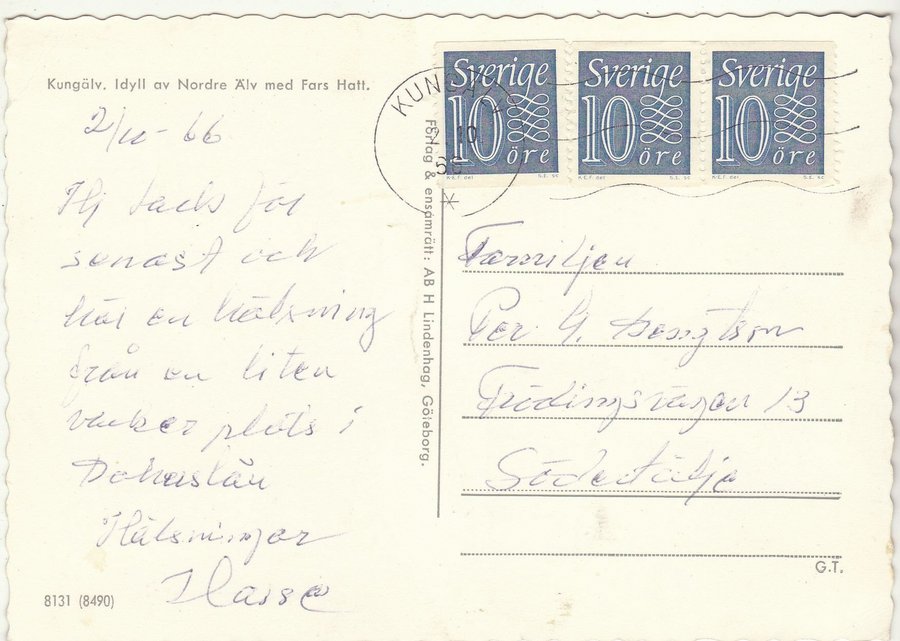 Kungälv. Idyll av Nordre Älv med Fars Hatt.
2/10 - 66
Hej tack för
senast och
här en hälsning
från en liten
vacker plats i
Bohuslän
Hälsningar
Hasse
8131 (8490)
Förlag & ensamrätt: AB H Lindenhag, Göteborg.
KUNGÄLV
2 10
Sverige
10 öre
K-E.F. del.
S.E. sc
Sverige
10 öre
K-E.F. del.
S.E. sc
Sverige
10 öre
K-E.F. del.
S.E. sc
Familjen
Per G. Bengtson
Frödingsvägen 13
Södertälje
G.T.